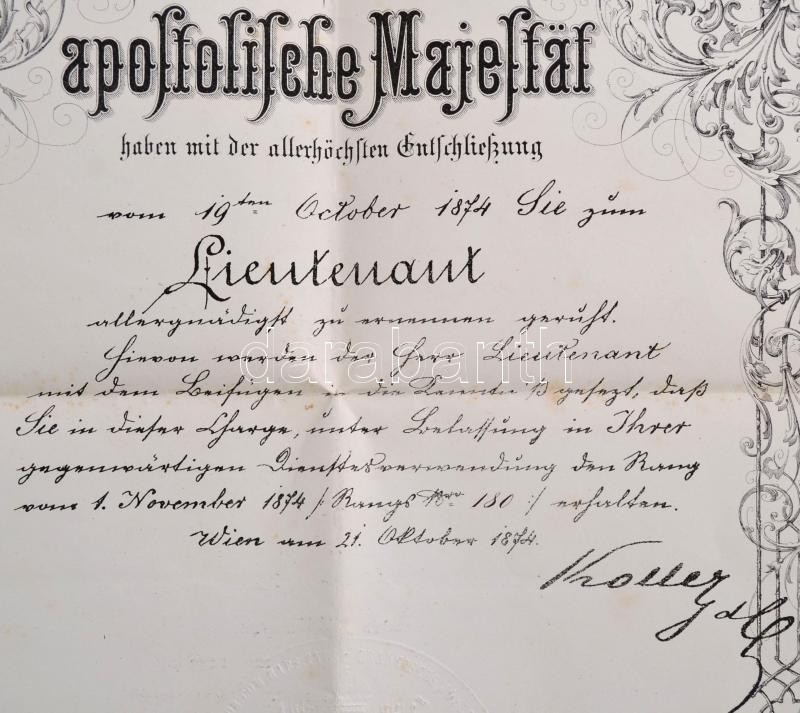 apostolische Majestät
haben mit der allerhöchsten Entschließung
vom 19ten October 1874 Sie zum
Lieutenant
allergnädigst zu ernennen geruht.
Hievon werden der Herr Lieutenant
mit dem Beifügen in die Kenntniß gesezt, daß
Sie in dieser Charge, unter Belassung in Ihrer
gegenwärtigen Dienstesverwendung den Rang
vom 1. November 1874 /: Rangs Nro 180 :/ erhalten.
Wien am 21. Oktober 1874.
Koller
darabanth